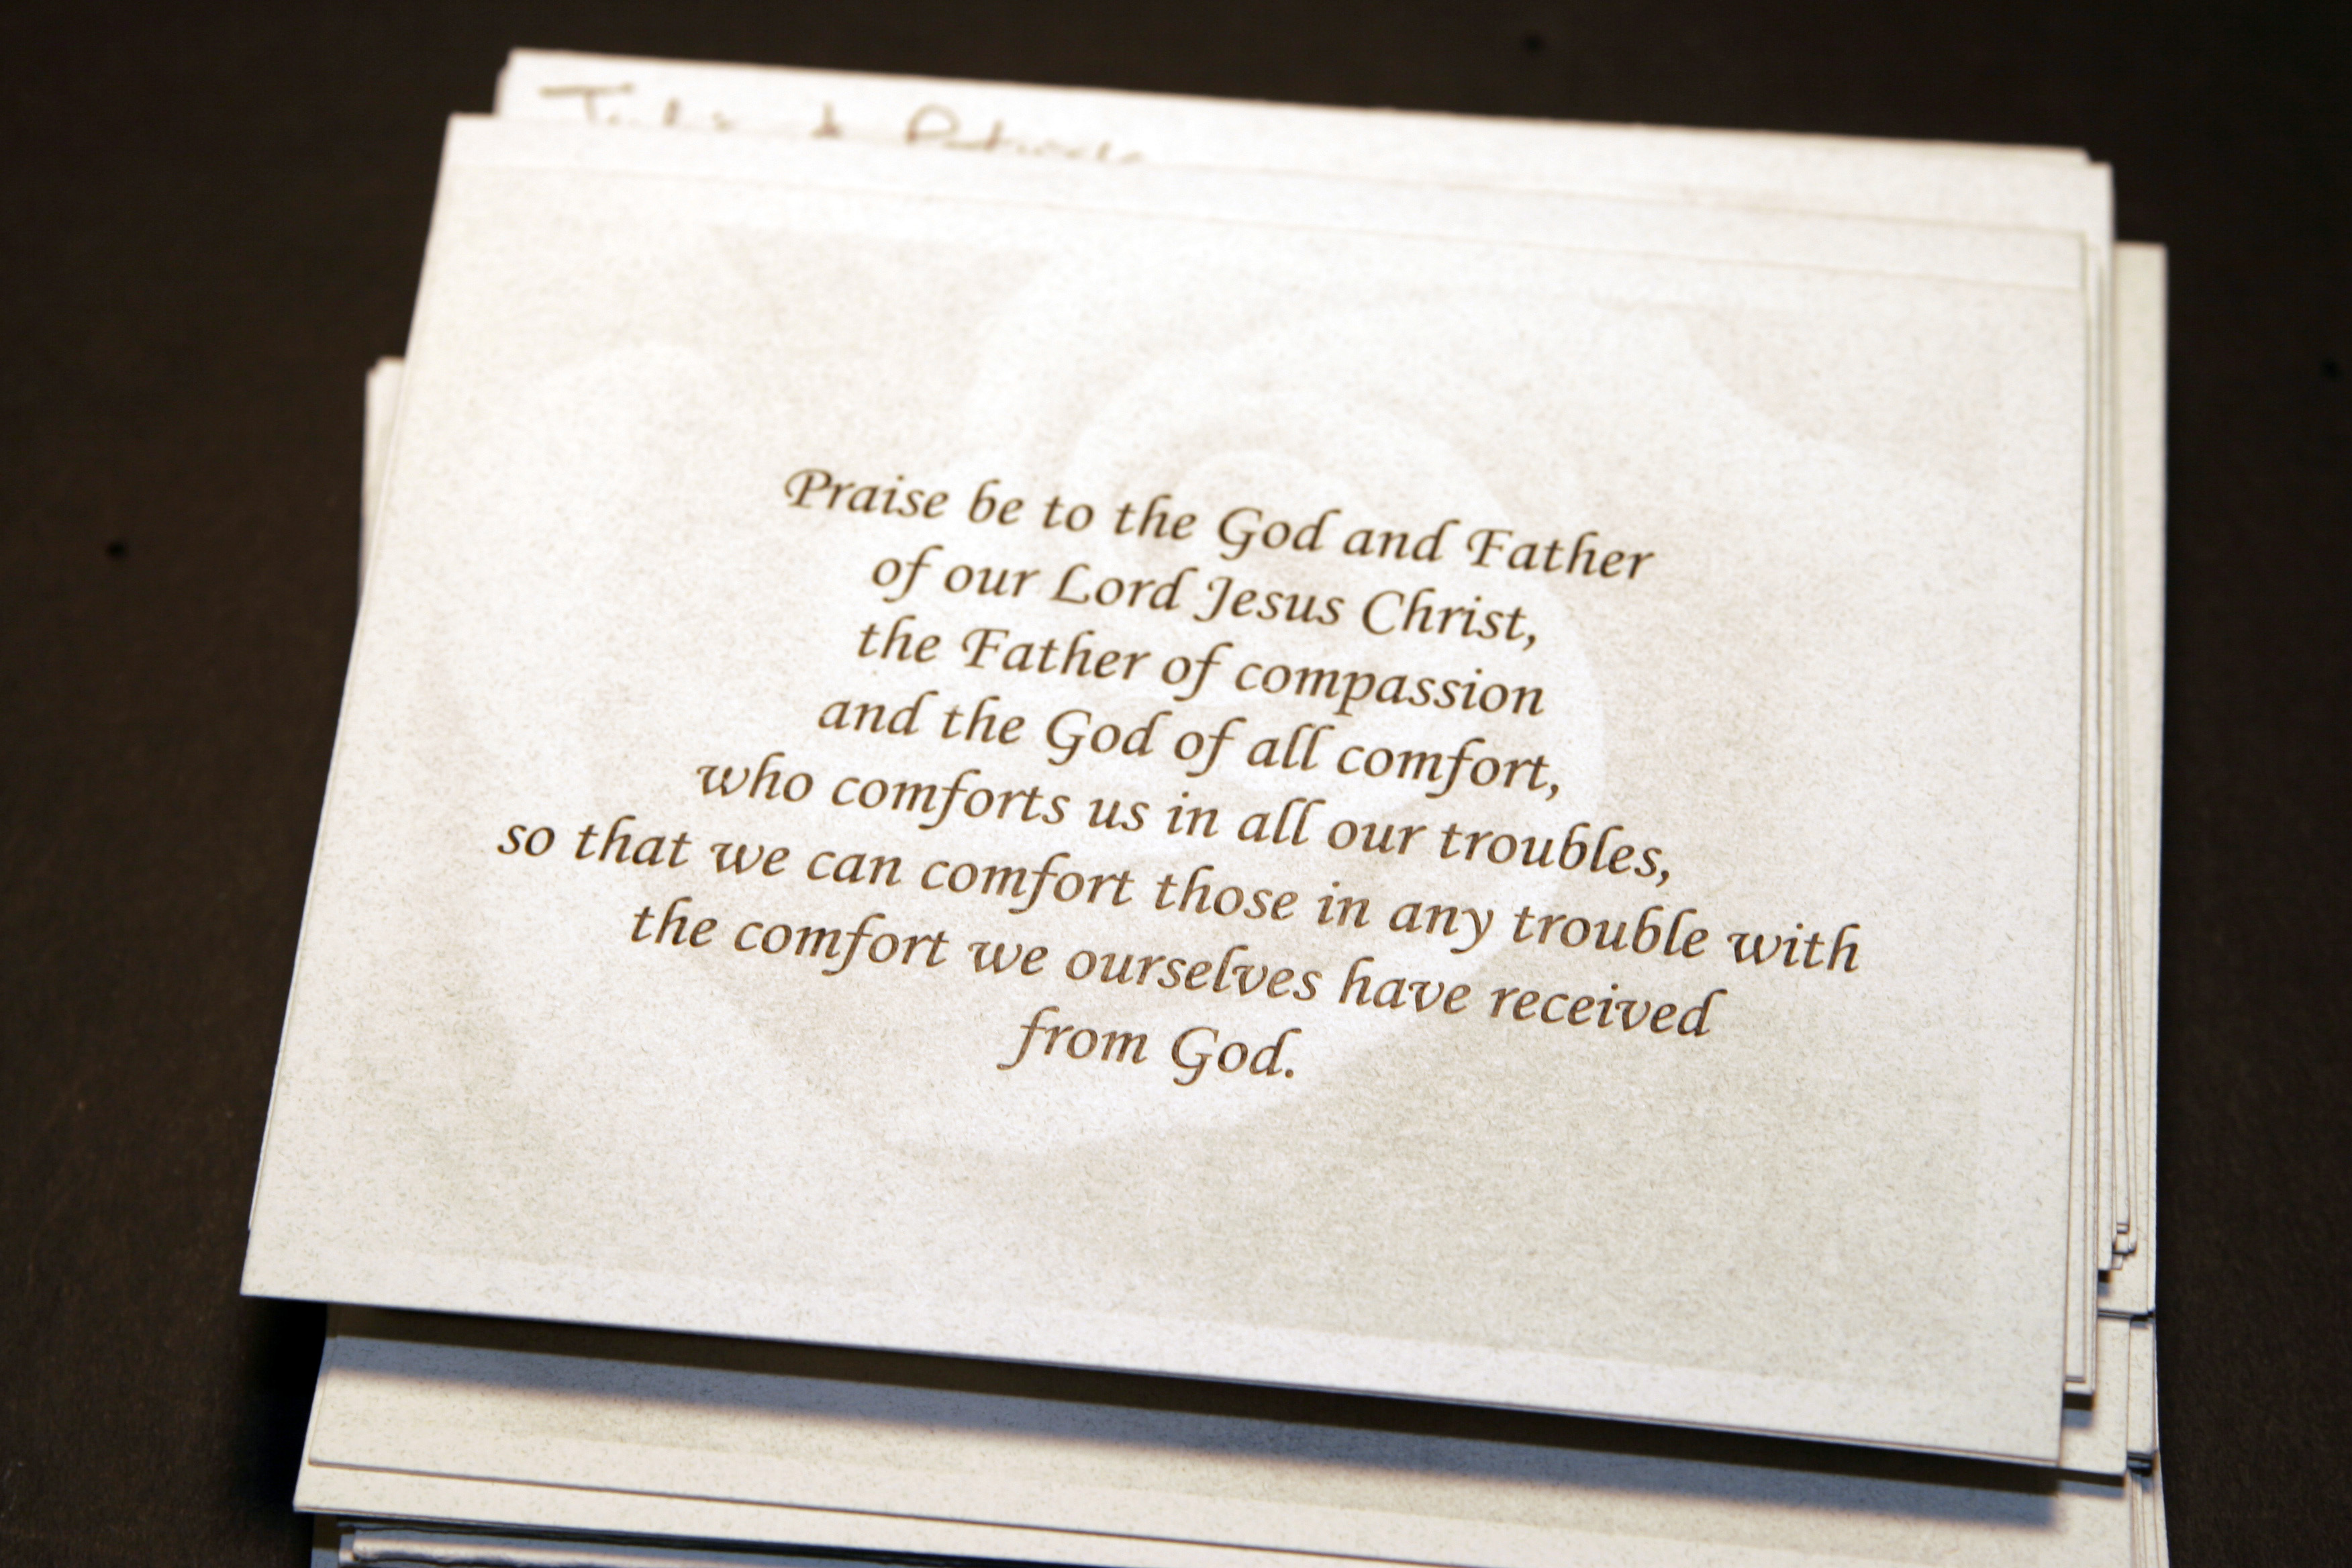 Praise be to the God and Father
of our Lord Jesus Christ,
the Father of compassion
and the God of all comfort,
who comforts us in all our troubles,
so that we can comfort those in any trouble with
the comfort we ourselves have received
from God.